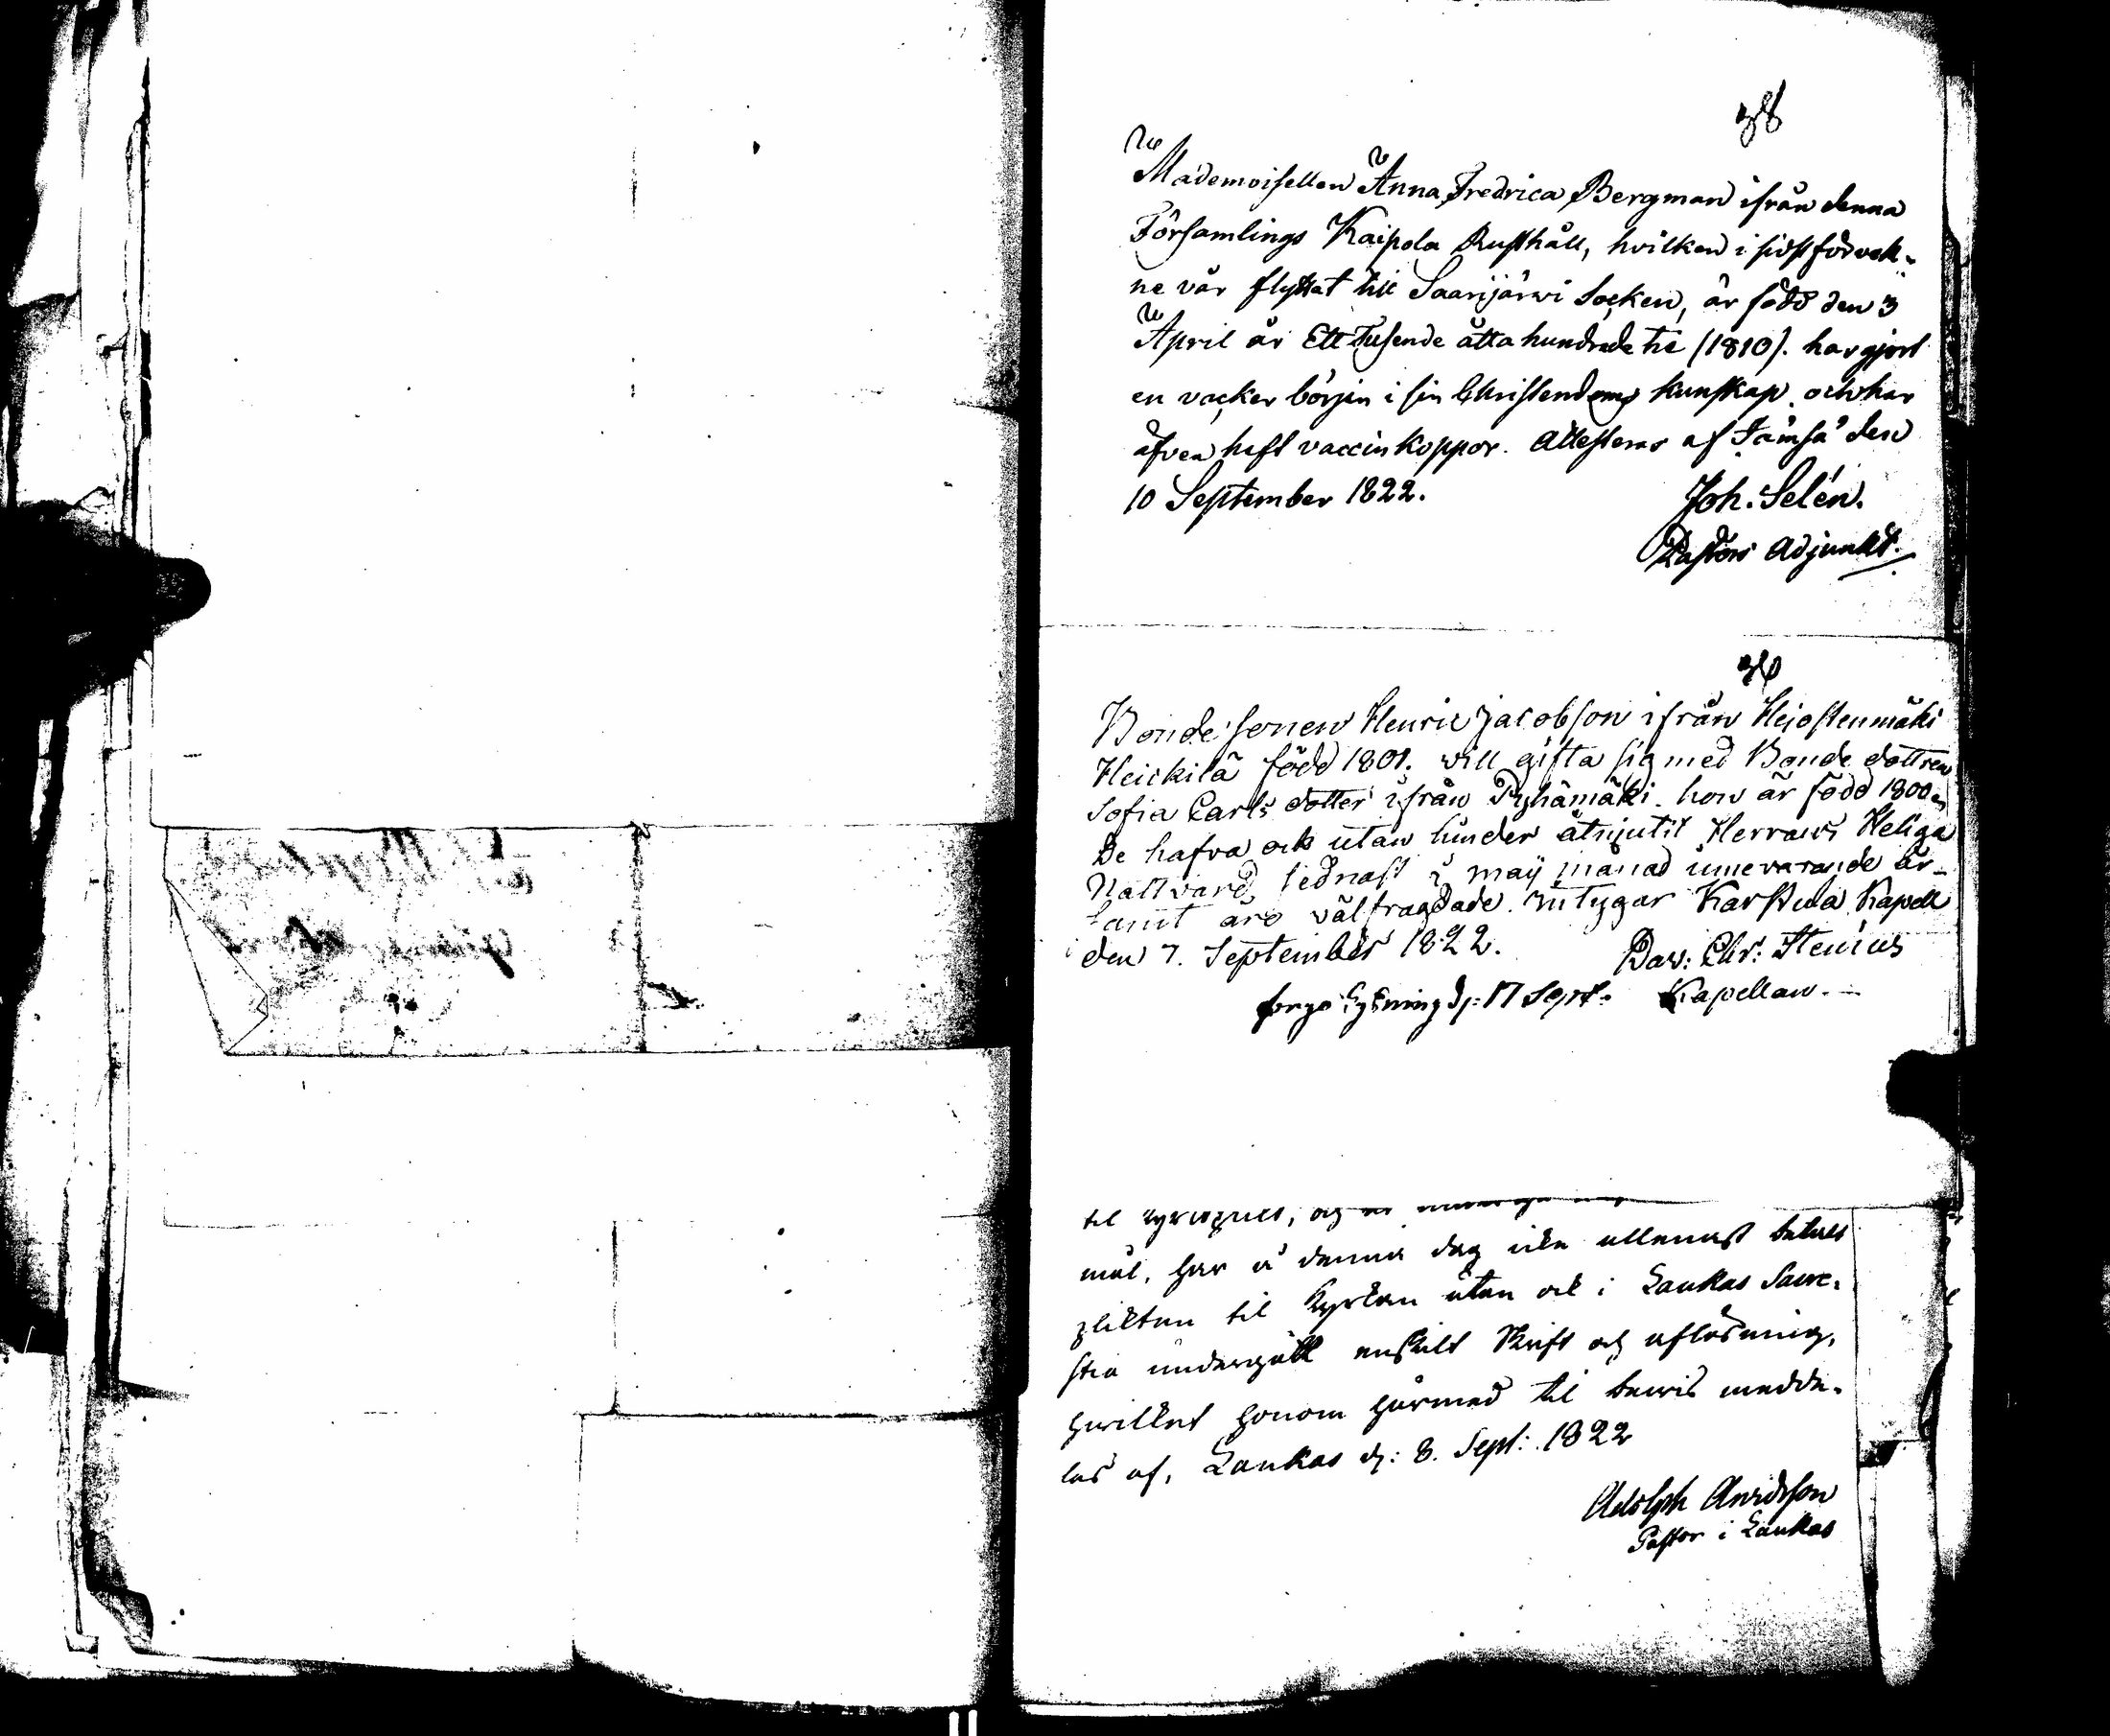 38
Mademoisellen Anna Fredrica Bergman ifrån denna
Församlings Kaipola Rusthåll, hvilken i sidstförvek-
ne vår flyttat till Saarijärwi Socken, är född den 3
April år Ett Tusende åtta hundrade tie (1810). har gjort
en vacker börjin i sin Christendoms kunskap och har
äfven haft vaccin koppor. Attesteras af Jämsä den
10 September 1822.
Joh. Selén.
Pastors Adjunkt.
Bonde sonen Henric Jacobson ifrån
Heickilä född 1801. will gifta sig med Bonde dottren
Sofia Carls dotter ifrån Pyhämäki. hon är född 1800
De hafva ock utan hinder åtnjutit Herrans Heliga
Nattvard sednast i maij månad innevarande år
samt äro väl frägdade. intygar Karstula Kapell
den 7. September 1822.
Dav: Chr: Stenius
Kapellan.
Lysning d: 17 Sept.
til
mål, har å denna dag icke allenast betalt
plikten til Kyrkan utan ock i Laukas Sacri-
stia undergått enskilt Skrift och aflösning,
hwilket honom härmed til bewis medde-
las af, Laukas d: 8. Sept: 1822
Adolph Arwidsson
Pastor i Laukas